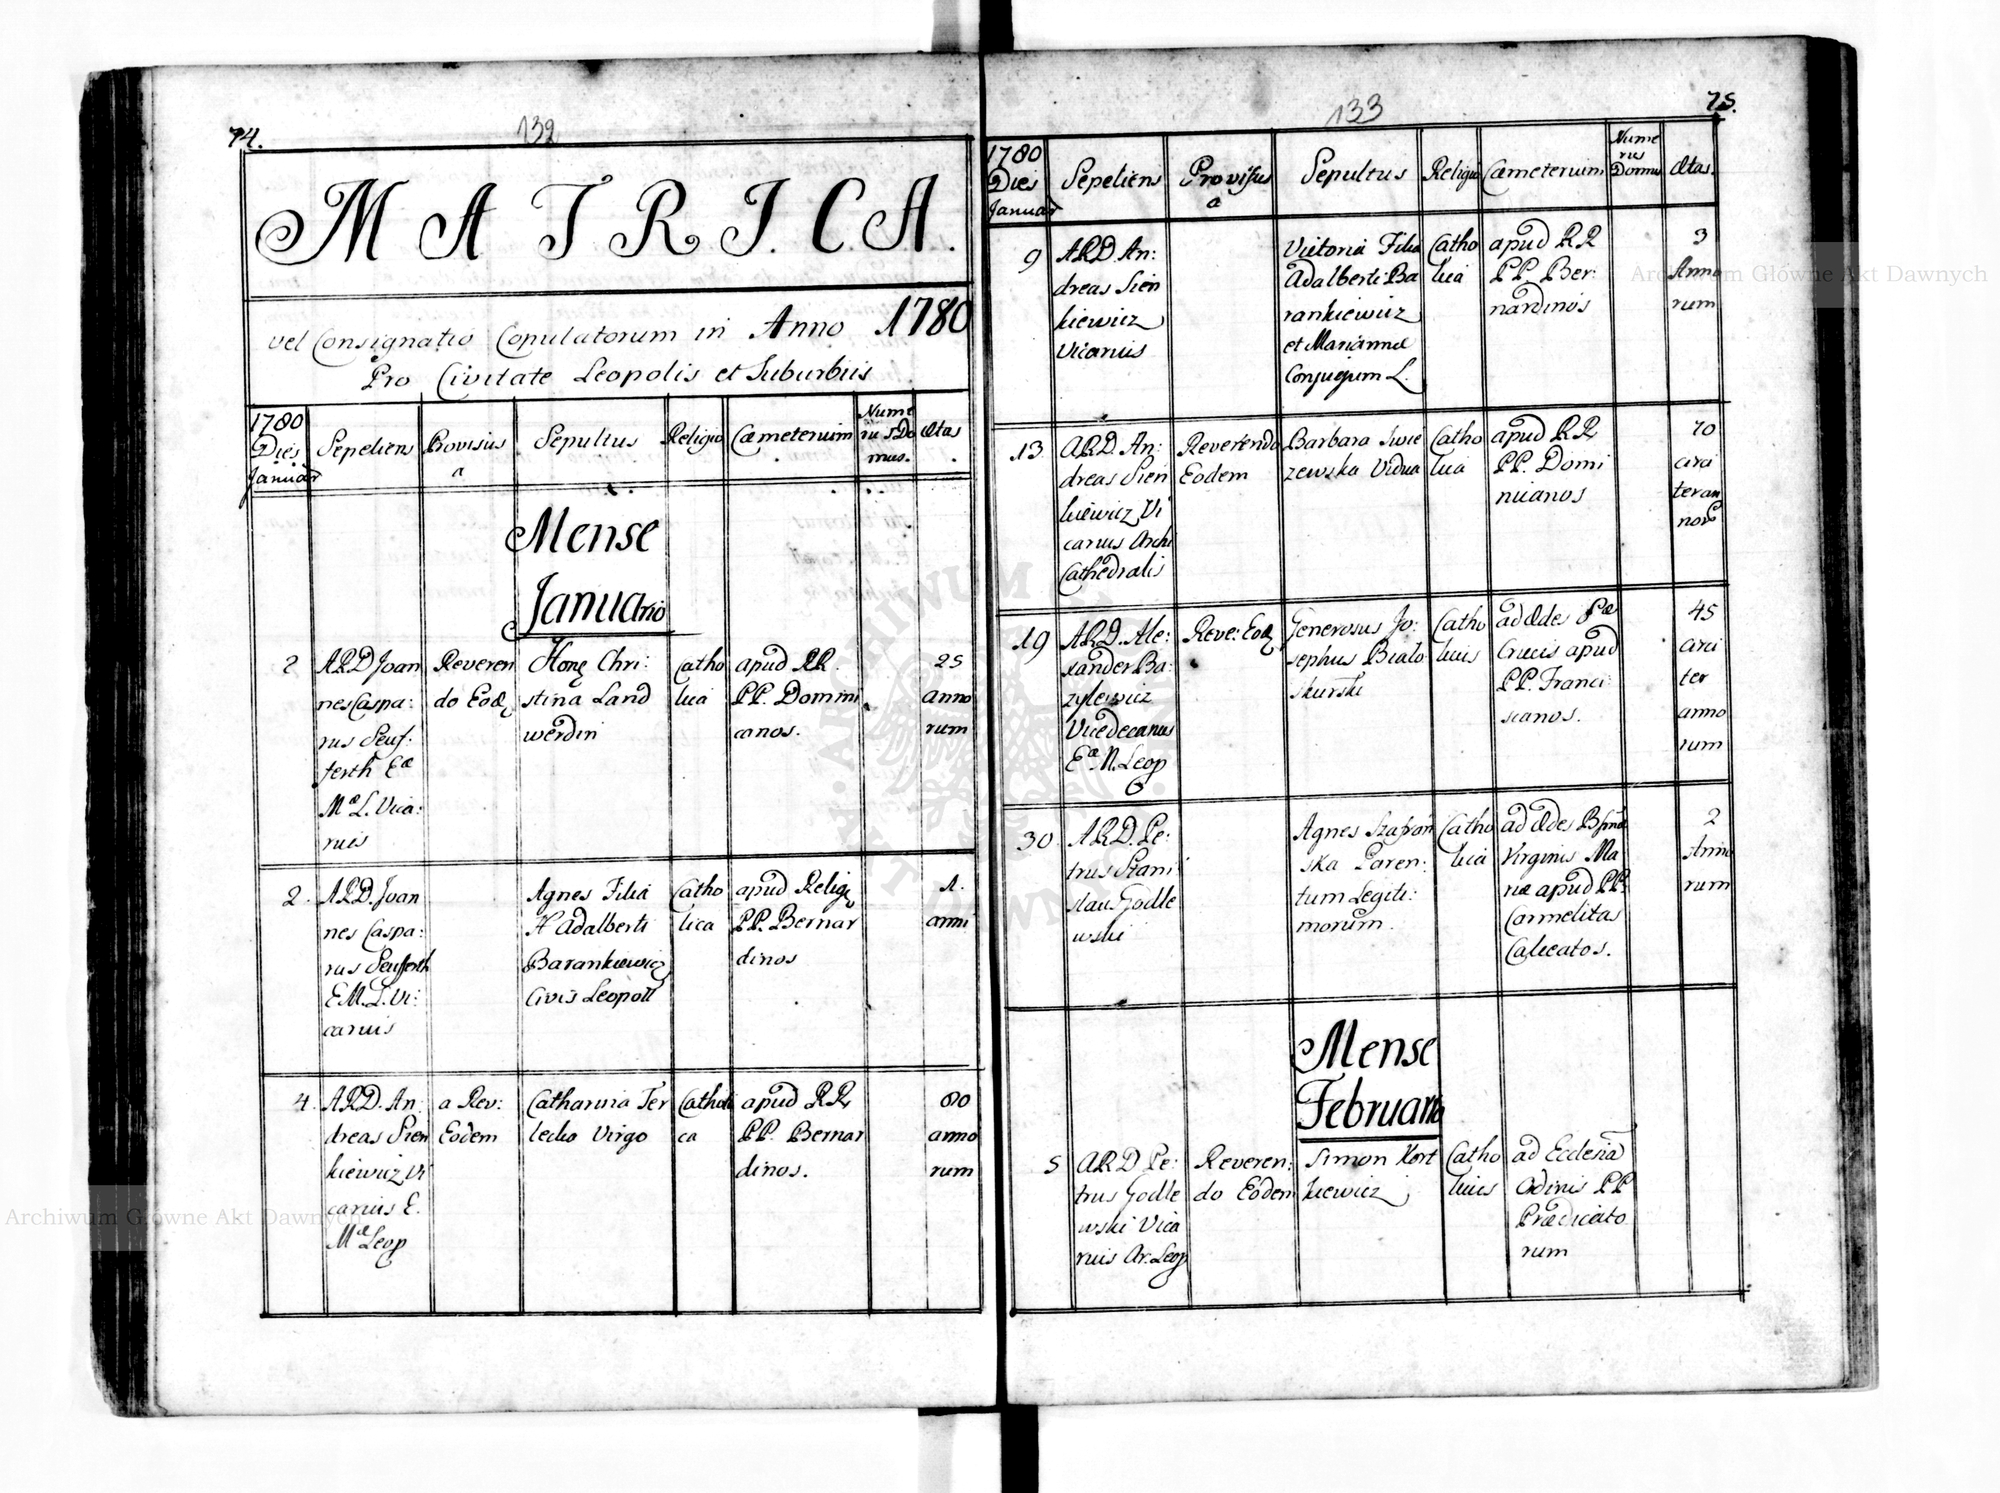 74.
132
MATRICA.
vel Consignatio Copulatorum in Anno 1780
Pro Civitate Leopolis et Suburbiis
1780
Dies
Januar
Sepeliens
Provisus
a
Sepultus
Religio
Cæmeterium
Nume
rus Do
mus.
Ætas
Mense
Januario
2
ARD Joan
nes Caspa:
rus Seuf:
ferth Eæ
Mæ L. Vica:
rius
Reveren
do Eod
Hon Chri:
stina Land
werdin
Catho
lica
apud RR.
PP. Domini
canos.
25
anno
rum
2.
ARD. Joan
nes Caspa:
rus Seufferth
E M. L. Vi:
carius
Agnes Filia
H Adalberti
Barankiewicz
Civis Leopoli
Catho
lica
apud Relig
PP. Bernar
dinos
1.
anni
4.
ARD. An:
dreas Sien
kiewicz Vi
carius E.
Mæ Leop
a Rev:
Eodem
Catharina Ter
lecka Virgo
Catholi
ca
apud RR
PP. Bernar
dinos.
80
anno
rum
75.
133
1780
Dies
Januar
Sepeliens
Provisus
a
Sepultus
Religio
Cæmeterium
Nume
rus
Domus
Ætas.
9
ARD An:
dreas Sien
kiewicz
Vicarius
Victoria Filia
Adalberti Ba
rankiewicz
et Mariannæ
Conjugum L.
Catho
lica
apud RR
PP. Ber:
nardinos
3
Anno
rum
13
ARD. An:
dreas Sien
kiewicz Vi
carius Archi
Cathedralis
Reverendo
Eodem
Barbara Swie
zewska Vidua
Catho
lica
apud RR
PP. Domi
nicanos
70
circi
ter an
noru
19
ARD. Ale:
xander Ba:
zylewicz
Vicedecanus
Eæ M. Leop
Reve: Eod
Generosus Jo:
sephus Bialo
skurski
Catho
licus
ad Ædes Sæ
Crucis apud
PP. Franci:
scanos.
45
circi
ter
anno
rum
30
ARD. Pe:
trus Stani
slaus Godle
wski
Agnes Szafran
ska Paren:
tum Legiti:
morum.
Catho
lica
ad Ædes
Virginis Ma
riæ apud PP.
Carmelitas
Calceatos.
2
Anno
rum
Mense
Februario
5
ARD Pe:
trus Godle
wski Vica
rius Ar: Leop
Reveren:
do Eodem
Simon Kort
kiewicz
Catho
licus
ad Ecclesia
Ordinis PP
Prædicato
rum
Archiwum Główne Akt Dawnych
Archiwum Główne Akt Dawnych